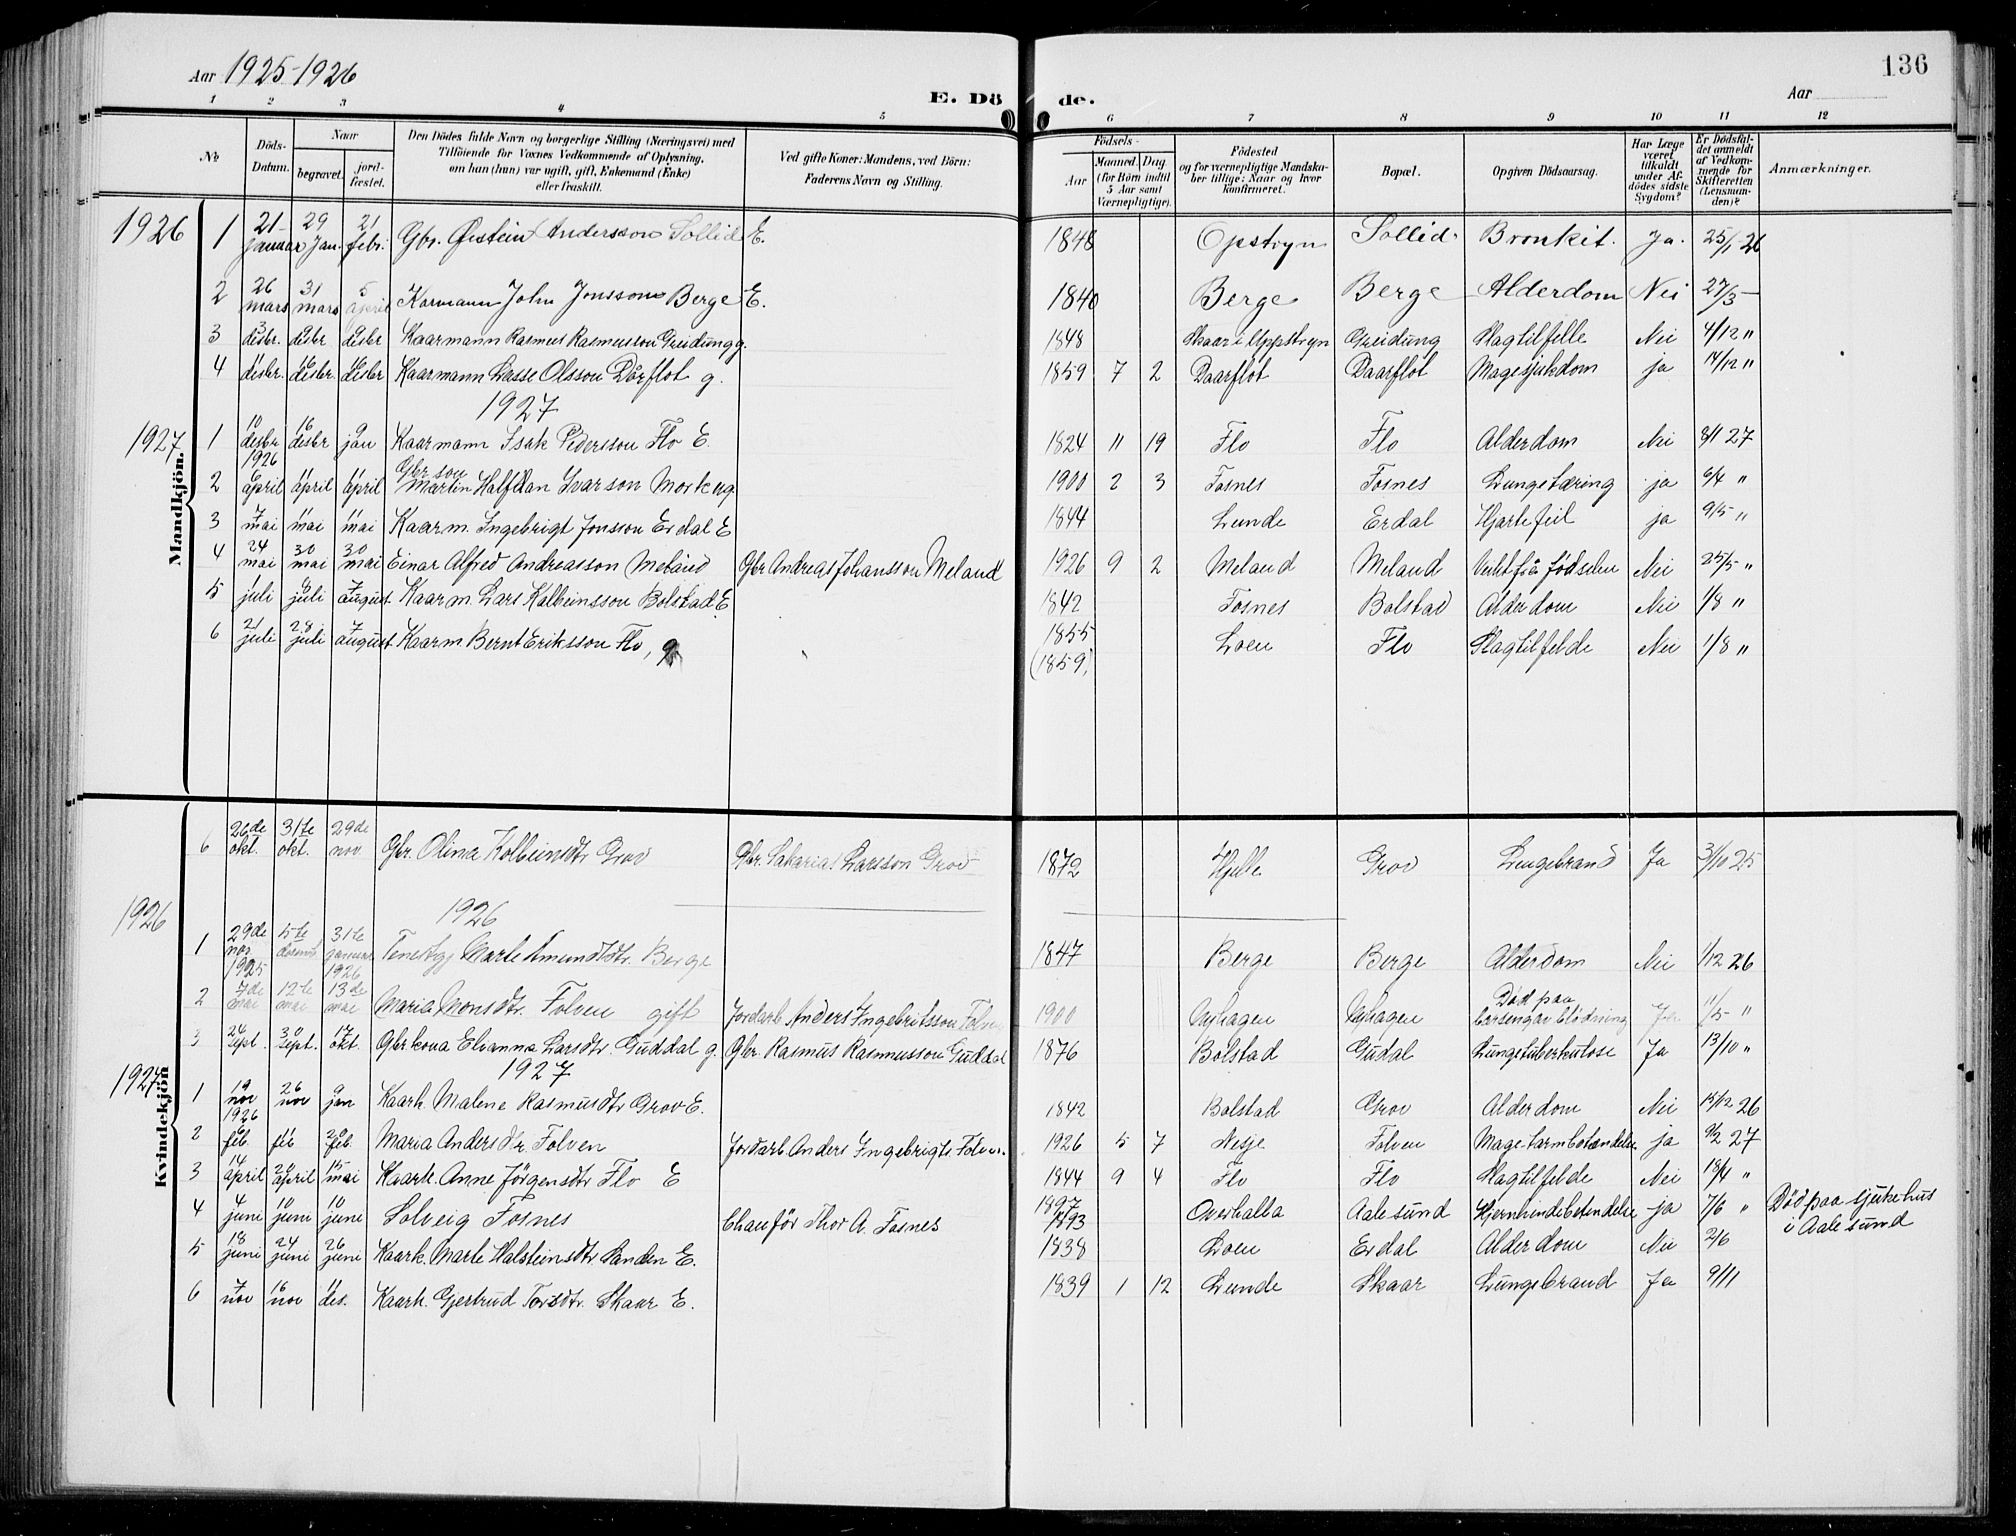 Aar 1925-1926
E. Döde.
136
Aar
1 2 3 4 5 6 7 8 9 10 11 12
No
Döds-Datum.
Naar
begravet.
jord-fæstet.
Den Dödes fulde Navn og borgerlige Stilling (Næringsvei) med
Tilföiende for Voxnes Vedkommende af Oplysning,
om han (hun) var ugift, gift, Enkemand (Enke)
eller fraskilt.
Ved gifte Koner: Mandens, ved Börn:
Faderens Navn og Stilling.
Födsels-
Aar
Maaned. Dag
(for Börn indtil
5 Aar samt
Værnepligtige).
Födested
og for værnepligtige Mandska-
ber tillige: Naar og hvor
konfirmeret.
Bopæl.
Opgiven Dödsaarsag.
Har Læge
været
tilkaldt
under Af-
dödes sidste
Sygdom?
Er Dödsfal-
det anmeldt
af Vedkom-
mende for
Skifteretten
(Lensman-
den)?
Anmærkninger.
Mandkjön.
1926 1 21 januar 29 Jan. 21 febr. Gbr. Øistein Andersson Sollid E. 1848 Opstryn Sollid Bronkit. Ja. 25/1 26
2 26 mars 31 mars 5 april Karmann John Jonsson Berge E. 1840 Berge Berge Alderdom Nei 27/3 -
3 3 desbr. 9 desbr 9 desbr Kaarmann Rasmus Rasmusson Greidung g. 1848 Skaar i Uppstryn Greidung Slagtilfelle Nei 4/12 "
4 11 desbr. 16 desbr. 16 desbr Kaarmann Lasse Olsson Dårflot g. 1859 7 2 Daarflot Daarflot Magesjukdom ja 14/12 "
1927
1927 1 10 desbr 1926 16 desbr 9 jan Kaarmann Isak Pedersson Flo E. 1824 11 19 Flo Flo Alderdom Nei 8/1 27
2 6 april 11 april 11 april Gbr.son Martin Halfdan Ivarson Mork ug. 1900 2 3 Fosnes Fosnes Lungetæring ja 6/4 "
3 7 mai 11 mai 11 mai Kaarm. Ingebrigt Jonsson Erdal E 1844 Lunde Erdal Hjartefeil ja 9/5 "
4 24 mai 30 mai 30 mai Einar Alfred Andreasson Meland Gbr Andreas Johansson Meland 1926 9 2 Meland Meland Veikt frå fødselen Nei 25/5 "
5 1 juli 9 juli 7 august Kaarm. Lars Kolbeinsson Bolstad E 1842 Fosnes Bolstad Alderdom Nei 1/8 "
6 21 juli 28 juli 7 august Kaarm. Bernt Eriksson Flo, g 1855 (1859) Loen Flo Slagtilfelde Nei 1/8 "
Kvindekjön
6 26de okt. 31te okt. 29de nov. Gbr. Olina Kolbeinsdtr Grov Gbr. Sakarias Larsson Grov 1872 Hjelle Grov Lungebrand Ja 3/10 25
1926
1926 1 29de nov 1925 5te 31te januar 1926 Marte Amundsdtr. Berge 1847 Berge Berge Alderdom Nei 1/12 26
2 7de mai 12te mai 13de mai Maria Monsdtr. Folven gift Jordarb Anders Ingebritsson Folven 1900 Nyhagen Nyhagen Død paa barseng av blødning Ja 11/5 "
3 24 sept. 30 sept. 17 okt. Gbrkona Elianna Larsdtr. Guddal g. Gbr. Rasmus Rasmusson Guddal 1876 Bolstad Gudal Lungetuberkulose Ja 13/10 "
1927
1927 1 19 nov 1926 26 nov 9 jan Kaark. Malene Rasmusdtr Grov E. 1842 Bolstad Grov Alderdom Nei 15/12 26
2 6 feb. 11 20 feb. Maria Andersdtr. Folven Jordarb Anders Ingebrigts. Folven. 1926 5 7 Nesje Folven Mage tarmbetændelse ja 9/2 27
3 14 april 20 april 15 mai Kaark. Anne Jörgensdtr Flo E 1844 9 4 Flo Flo Slagtilfelde Nei 18/4 "
4 4 juni 10 juni 10 juni Solveig Fosnes Chauför Thor A. Fosnes 1897 1893 Overhalla Aalesund Hjernhindebetendelse ja 7/6 " Död paa sjukehus i Aalesund
5 18 juni 24 juni 26 juni Kaark. Marte Halsteinsdtr Sanden E. 1838 Loen Erdal Alderdom Nei 2/6
6 7 nov 16 nov 11 des. Kaark. Gjertrud Torsdtr. Skaar E. 1839 1 12 Lunde Skaar Lungebrand Ja 9/11